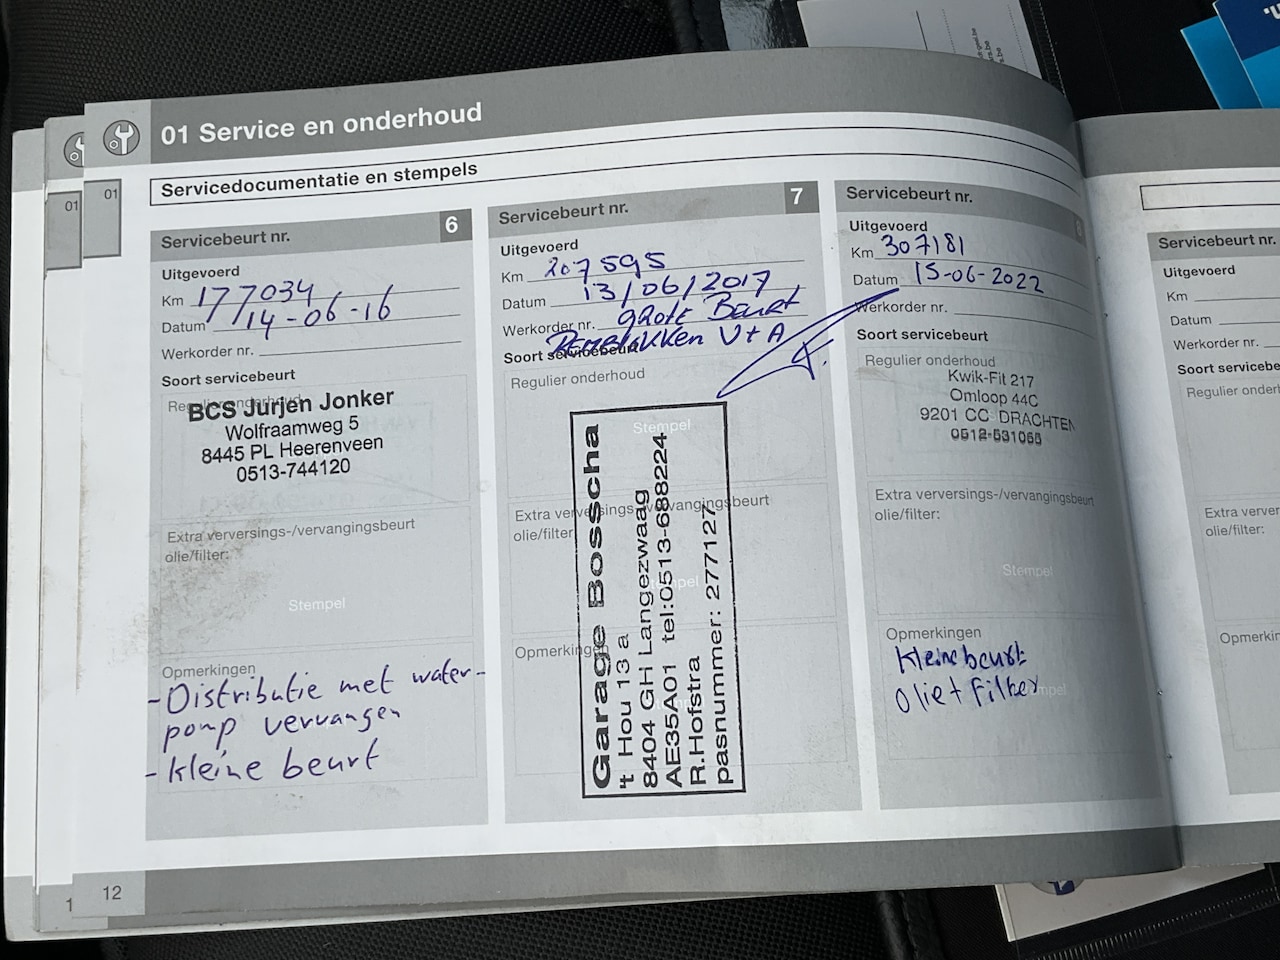 01 Service en onderhoud
01
01
Servicedocumentatie en stempels
Servicebeurt nr. 6
Uitgevoerd
Km 177034
Datum 14-06-16
Werkorder nr.
Soort servicebeurt
Regulier onderhoud
BCS Jurjen Jonker
Wolfraamweg 5
8445 PL Heerenveen
0513-744120
Extra verversings-/vervangingsbeurt
olie/filter:
Stempel
Opmerkingen
- Distributie met water-
pomp vervangen
- kleine beurt
Servicebeurt nr. 7
Uitgevoerd
Km 207595
Datum 13/06/2017
Werkorder nr. grote Beurt
Remblokken V+A
Soort servicebeurt
Regulier onderhoud
Stempel
Garage Bosscha
't Hou 13 a
8404 GH Langezwaag
AE35A01 tel:0513-688224
R.Hofstra
pasnummer: 277127
Extra verversings-/vervangingsbeurt
olie/filter
Stempel
Opmerkingen
Servicebeurt nr.
Uitgevoerd
Km 307181
Datum 15-06-2022
Werkorder nr.
Soort servicebeurt
Regulier onderhoud
Kwik-Fit 217
Omloop 44C
9201 CC DRACHTEN
0512-531065
Extra verversings-/vervangingsbeurt
olie/filter:
Stempel
Opmerkingen
Kleine beurt
Olie + Filter
Servicebeurt nr.
Uitgevoerd
Km
Datum
Werkorder nr.
Soort servicebe
Regulier onder
Extra verver
olie/filter:
Opmerkin
12
1